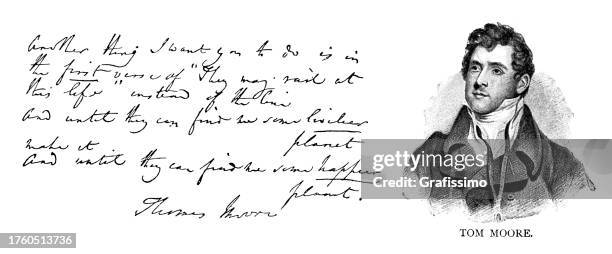 Another thing I want you to do is in
the first verse of "They may rail at
this life" instead of the line
And until they can find me some livelier
planet
make it
And until they can find me some happier
planet.
Thomas Moore
TOM MOORE.
gettyimages
Credit: Grafissimo
1760513736